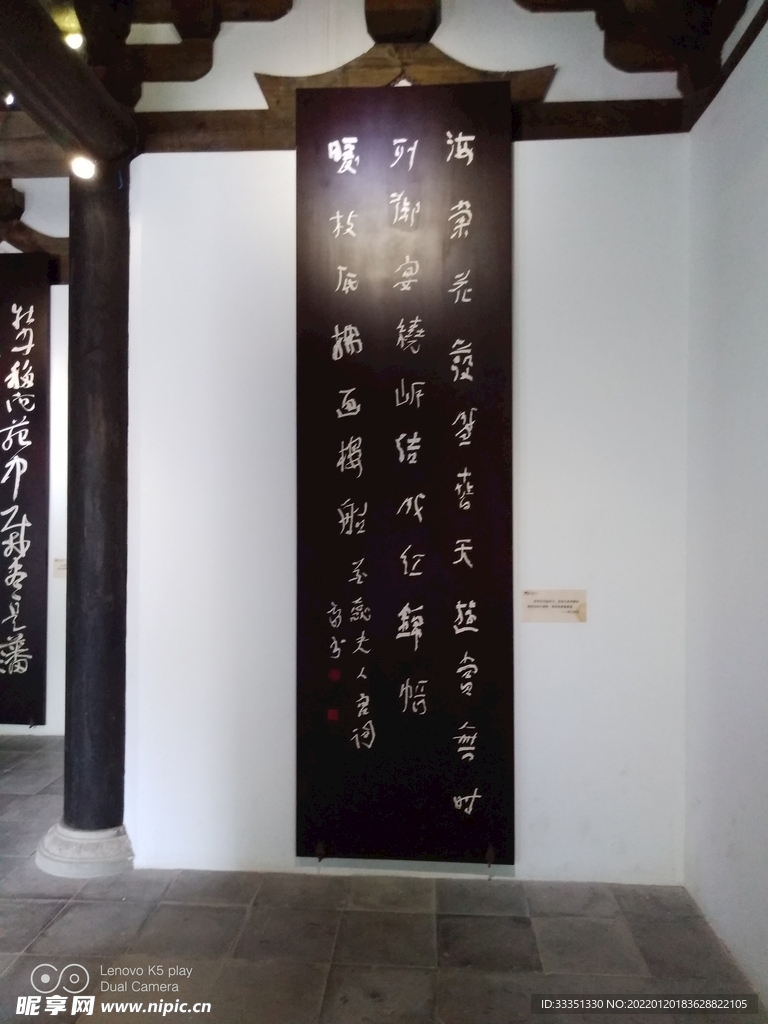 海棠花發盛春天遊賞無時
列御宴繞岸結成红錦帳
暖枝底拂画樓船
花蕊夫人宫词
牡丹移向苑中栽尽是藩
Lenovo K5 play
Dual Camera
昵享网 www.nipic.cn
ID:33351330 NO:20220120183628822105